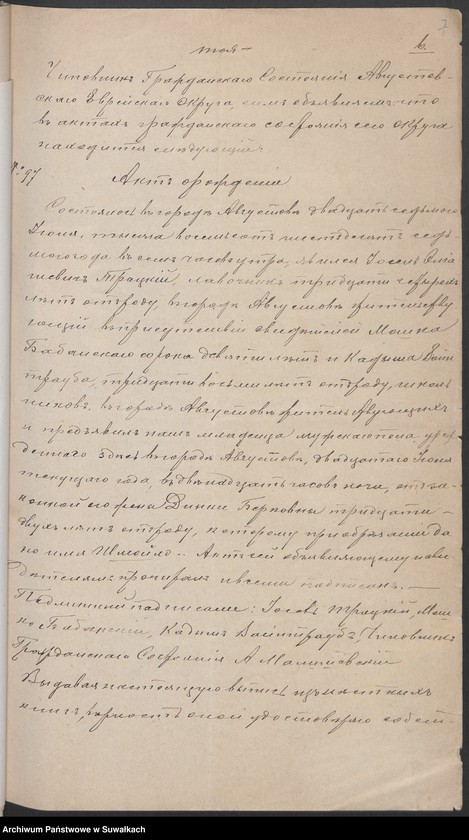 7
тоя –
6.
Чиновникъ Гражданскаго Состоянія Августов-
скаго Еврейскаго Округа, симъ объявляетъ что
въ актахъ гражданскаго состоянія сего Округа
находится слѣдующій:
№ 97
Актъ о рожденіи
Состоялось въ городѣ Августовѣ двадцать седьмого
Іюля, тысяча восемьсотъ шестьдесятъ седь-
мого года въ восемь часовъ утра, явился Іосель
Трацкій, лавочникъ тридцати четырехъ
лѣтъ отъ роду, въ городѣ Августовѣ жительству-
ющій въ присутствіи свидѣтелей Мошка
Бабанскаго сорока девяти лѣтъ и Кадыша Вайн
трауба, тридцати восьми лѣтъ отъ роду, школь
никовъ, въ городѣ Августовѣ жительствующихъ
и предъявилъ намъ младенца мужескаго пола, рож-
деннаго здѣсь въ городѣ Августовѣ, двадцатаго Іюля
текущаго года, въ двѣнадцать часовъ ночи, отъ за-
конной его жены Берковны тридцати –
двухъ лѣтъ отъ роду, которому при обрѣзаніи да
но имя Шмойло.. Актъ сей объявляющему и сви-
дѣтелямъ прочитанъ и всеми подписанъ. –
Подлинный подписали: Іосель Трацкій, Мош-
ко Бабанскій, Кадышъ Вайнтраубъ, Чиновникъ
Гражданскаго Состоянія А
Выдавая настоящую выпись изъ
книгъ, вѣрность оной удостовѣряю собст-
Archiwum Państwowe w Suwałkach